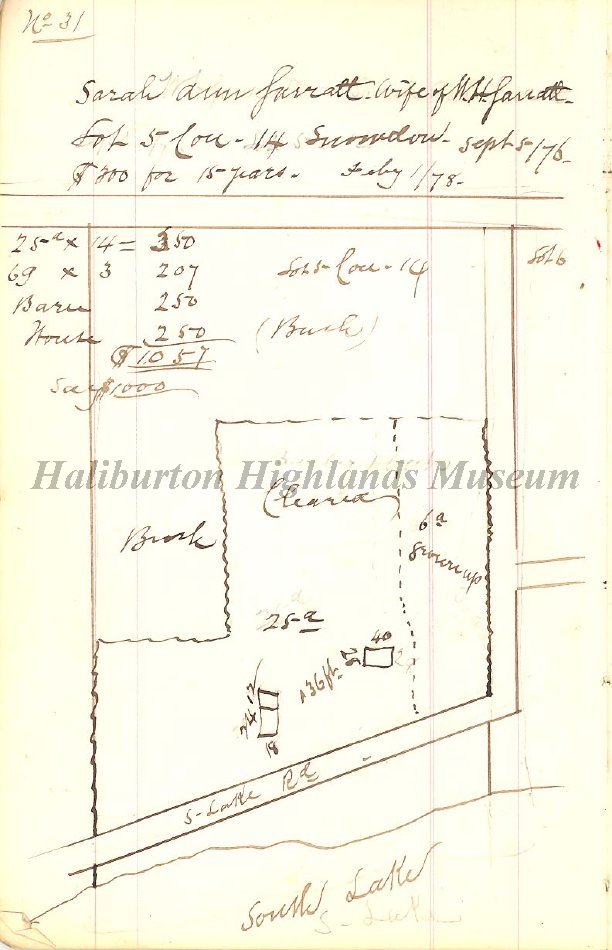 No 31
Sarah Ann Garratt. Wife of W. H. Garratt.
Lot 5 Con - 14 Snowdon - Sept 5/76.
$200 for 15 years. Feby 1/78.
25a x 14 = 350
69 x 3 207
Barn 250
House 250
$1057
Say $1000
Lot 5 - Con - 14
(Bush)
Lot 6
Haliburton Highlands Museum
Cleared
Bush
6a
Grown up
25a
40
25
136 ft.
12
24
18
S - Lake Rd -
South Lake
S - Lake